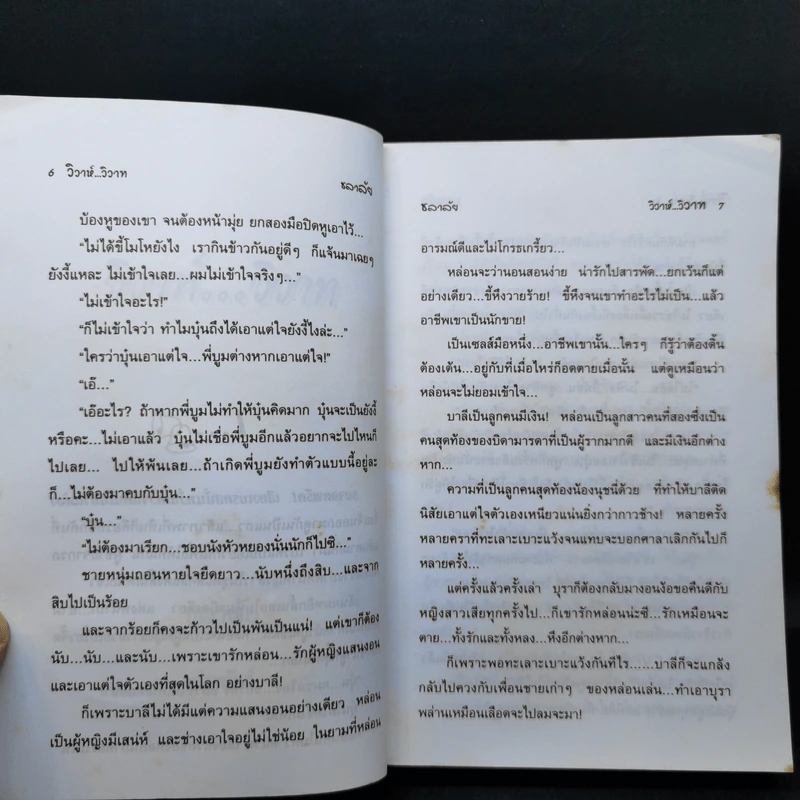 ๖ วิวาห์...วิวาท
ชลาลัย
บ้องหูของเขา จนต้องหน้ามุ่ย ยกสองมือปิดหูเอาไว้...
“ไม่ได้ขี้โมโหยังไง เรากินข้าวกันอยู่ดีๆ ก็แจ้นมาเฉยๆ
ยังงี้แหละ ไม่เข้าใจเลย...ผมไม่เข้าใจจริงๆ...”
“ไม่เข้าใจอะไร!
“ก็ไม่เข้าใจว่า ทำไมบุ๋นถึงได้เอาแต่ใจยังงี้ไงล่ะ...”
“ใครว่าบุ๋นเอาแต่ใจ...พี่บูมต่างหากเอาแต่ใจ!
“เอ๊...”
“เอ๊อะไร? ถ้าหากพี่บูมไม่ทำให้บุ๋นคิดมาก บุ๋นจะเป็นยังงี้
หรือคะ...ไม่เอาแล้ว บุ๋นไม่เชื่อพี่บูมอีกแล้วอยากจะไปไหนก็
ไปเลย... ไปให้พ้นเลย...ถ้าเกิดพี่บูมยังทำตัวแบบนี้อยู่ละ
ก็...ไม่ต้องมาคบกับบุ๋น...”
“บุ๋น...”
“ไม่ต้องมาเรียก...ชอบนังหัวหยองนั่นนักก็ไปซิ...”
ชายหนุ่มถอนหายใจยืดยาว...นับหนึ่งถึงสิบ...และจาก
สิบไปเป็นร้อย
และจากร้อยก็คงจะก้าวไปเป็นพันเป็นแน่! แต่เขาก็ต้อง
นับ...นับ...และนับ...เพราะเขารักหล่อน...รักผู้หญิงแสนงอน
และเอาแต่ใจตัวเองที่สุดในโลก อย่างบาลี!
ก็เพราะบาลีไม่ได้มีแต่ความแสนงอนอย่างเดียว หล่อน
เป็นผู้หญิงมีเสน่ห์ และช่างเอาใจอยู่ไม่ใช่น้อย ในยามที่หล่อน
ชลาลัย
วิวาห์...วิวาท 7
อารมณ์ดีและไม่โกรธเกรี้ยว...
หล่อนจะว่านอนสอนง่าย น่ารักไปสารพัด...ยกเว้นก็แต่
อย่างเดียว...ขี้หึงวายร้าย! ขี้หึงจนเขาทำอะไรไม่เป็น...แล้ว
อาชีพเขาเป็นนักขาย!
เป็นเซลส์มือหนึ่ง...อาชีพเขานั้น...ใครๆ ก็รู้ว่าต้องดิ้น
ต้องเต้น...อยู่กับที่เมื่อไหร่ก็อดตายเมื่อนั้น แต่ดูเหมือนว่า
หล่อนจะไม่ยอมเข้าใจ...
บาลีเป็นลูกคนมีเงิน! หล่อนเป็นลูกสาวคนที่สองซึ่งเป็น
คนสุดท้องของบิดามารดาที่เป็นผู้รากมากดี และมีเงินอีกต่าง
หาก...
ความที่เป็นลูกคนสุดท้องน้องนุชนี่ด้วย ที่ทำให้บาลีติด
นิสัยเอาแต่ใจตัวเองเหนียวแน่นยิ่งกว่ากาวช้าง! หลายครั้ง
หลายคราที่ทะเลาะเบาะแว้งจนแทบจะบอกศาลาเลิกกันไปก็
หลายครั้ง...
แต่ครั้งแล้วครั้งเล่า บุราก็ต้องกลับมางอนง้อขอคืนดีกับ
หญิงสาวเสียทุกครั้งไป...ก็เขารักหล่อนน่ะซี...รักเหมือนจะ
ตาย...ทั้งรักและทั้งหลง...หึงอีกต่างหาก...
ก็เพราะพอทะเลาะเบาะแว้งกันทีไร......บาลีก็จะแกล้ง
กลับไปควงกับเพื่อนชายเก่าๆ ของหล่อนเล่น...ทำเอาบุรา
พล่านเหมือนเลือดจะไปลมจะมา!